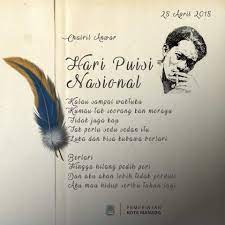 28 April 2018
Chairil Anwar
Hari Puisi
Nasional
Kalau sampai waktuku
Kumau tak seorang kan merayu
Tidak juga kau
Tak perlu sedu sedan itu
Luka dan bisa kubawa berlari
Berlari
Hingga hilang pedih peri
Dan aku akan lebih tidak perduli
Aku mau hidup seribu tahun lagi
PEMERINTAH
KOTA MANADO